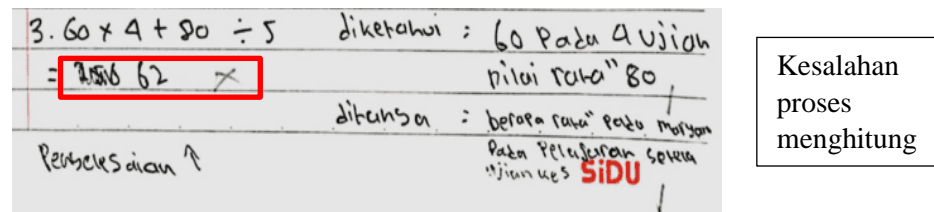 3. 60 x 4 + 80 ÷ 5
= 62 x
Penyelesaian ↑
diketahui : 60 pada 4 ujian
nilai rata" 80
ditanya : berapa rata" pada maryam
pada pelajaran
ujian ke5 SiDU
Kesalahan
proses
menghitung